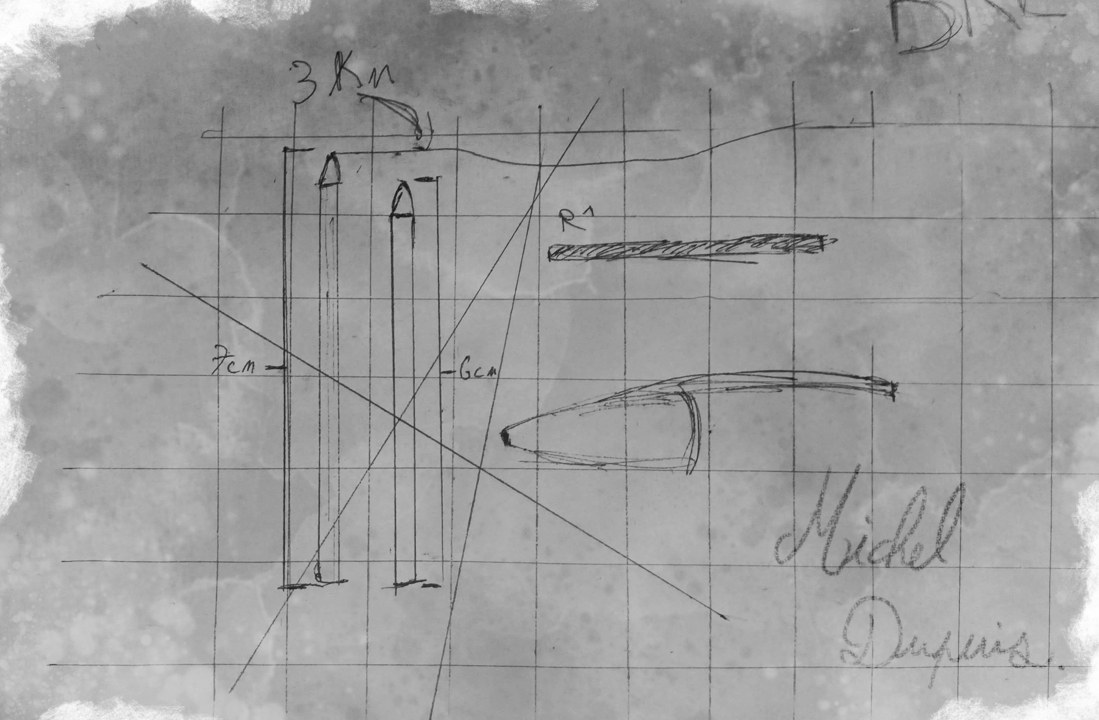 3 Kn
R^
7cm
6cm
Michel
Dupuis.